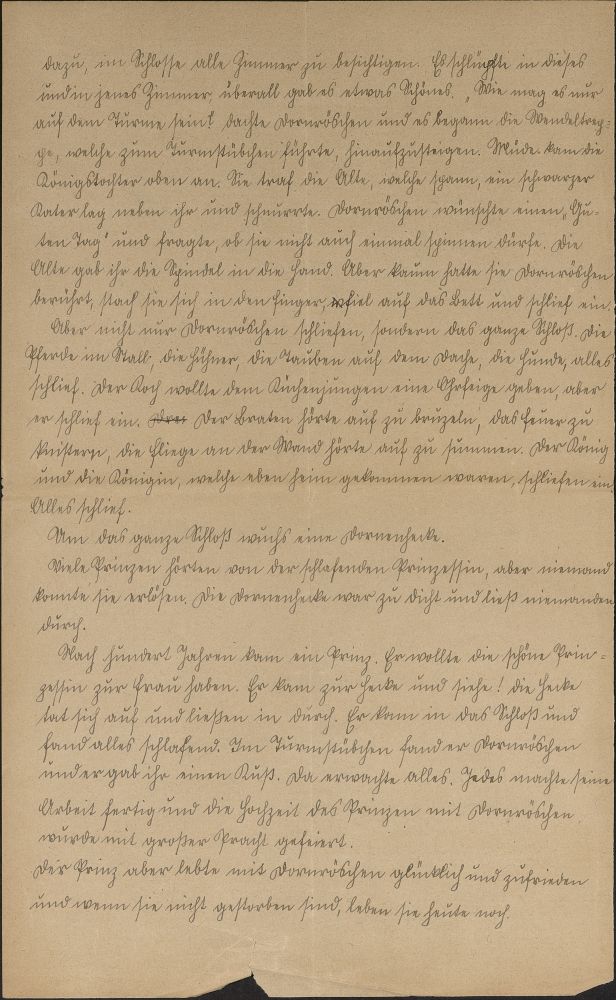 dazu, im Schlosse alle Zimmer zu besichtigen. Es schlüpfte in dieses
und in jenes Zimmer, überall gab es etwas Schönes. „Wie mag es nur
auf dem Turme sein?" dachte Dornröschen und es begann die Wendeltrep-
pe, welche zum Turmstübchen führte, hinaufzusteigen. Müde kam die
Königstochter oben an. Sie traf die Alte, welche spann, ein schwarzer
Kater lag neben ihr und schnurrte. Dornröschen wünschte einen „Gu-
ten Tag" und fragte, ob sie nicht auch einmal spinnen dürfe. Die
Alte gab ihr die Spindel in die Hand. Aber kaum hatte sie Dornröschen
berührt, stach sie sich in den Finger, fiel auf das Bett und schlief ein.
Aber nicht nur Dornröschen schliefen, sondern das ganze Schloß. Die
Pferde im Stall, die Hühner, die Tauben auf dem Dache, die Hunde, alles
schlief. Der Koch wollte dem Küchenjungen eine Ohrfeige geben, aber
er schlief ein. Der Braten hörte auf zu bruzeln, das Feuer zu
knistern, die Fliege an der Wand hörte auf zu summen. Der König
und die Königin, welche eben heim gekommen waren, schliefen ein
Alles schlief.
Um das ganze Schloß wuchs eine Dornenhecke.
Viele Prinzen hörten von der schlafenden Prinzessin, aber niemand
konnte sie erlösen. Die Dornenhecke war zu dicht und ließ niemanden
durch.
Nach hundert Jahren kam ein Prinz. Er wollte die schöne Prin-
zessin zur Frau haben. Er kam zur Hecke und siehe! die Hecke
tat sich auf und ließen in durch. Er kam in das Schloß und
fand alles schlafend. Im Turmstübchen fand er Dornröschen
und er gab ihr einen Kuß. Da erwachte alles. Jedes machte seine
Arbeit fertig und die Hochzeit des Prinzen mit Dornröschen
wurde mit großer Pracht gefeiert.
Der Prinz aber lebte mit Dornröschen glücklich und zufrieden
und wenn sie nicht gestorben sind, leben sie heute noch.